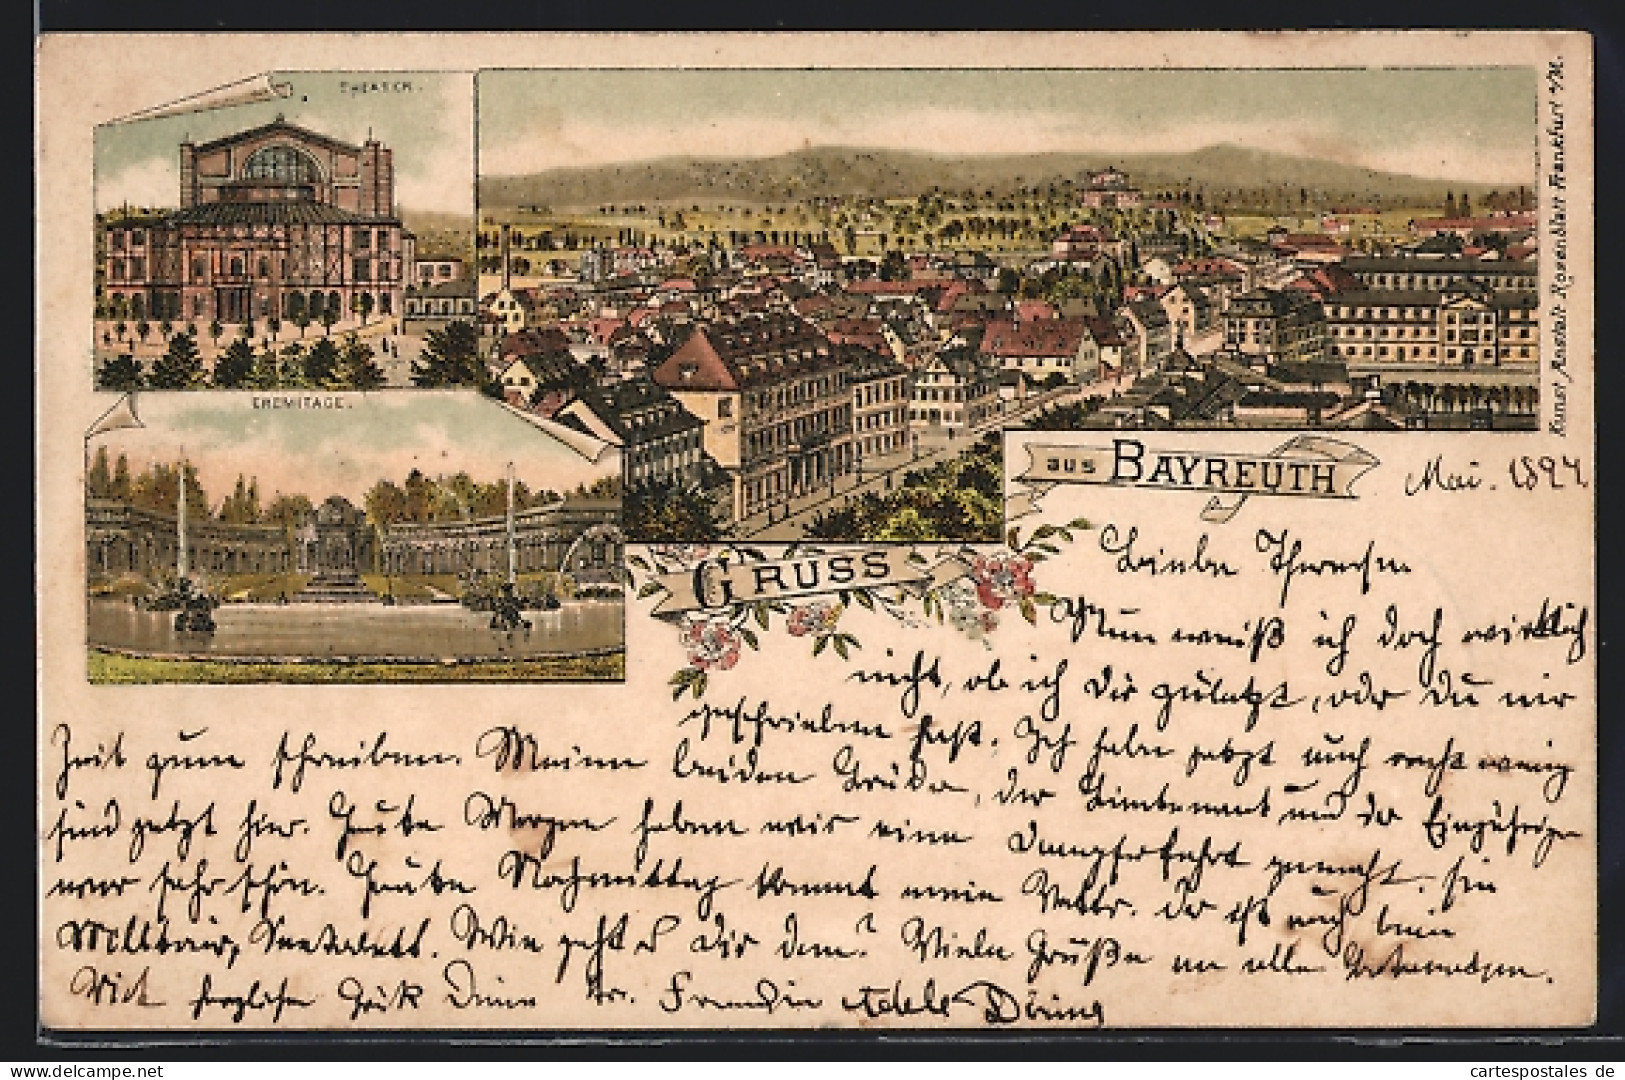 THEATER.
EREMITAGE.
Kunst Anstalt Rosenblatt Frankfurt a/M.
aus BAYREUTH
GRUSS
Mai. 1897
Liebe Therese
Nun weiß ich doch wirklich
nicht, ob ich Dir zuletzt, oder Du mir
geschrieben hast. Ich habe jetzt auch recht wenig
Zeit zum schreiben. Meine beiden Brüder, der Lieutenant und der Einjährige
sind jetzt hier. Heute Morgen haben wir eine Dampferfahrt gemacht. sie
war sehr schön. Heute Nachmittag kommt mein Vetter. der ist auch beim
Militair, Seekadett. Wie geht es Dir denn? Viele Grüße an alle
Mit herzlichem Deine Freundin Adele Döring
cartespostales de